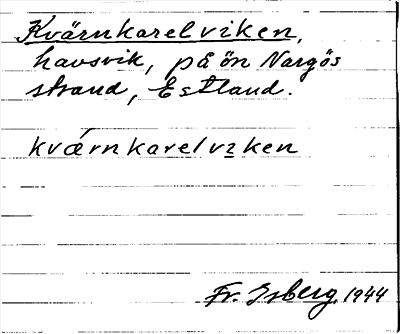 Kvärnkarelviken,
havsvik, på ön Nargös
strand, Estland.
kvǽrnkarelvıken
Fr. Isberg 1944